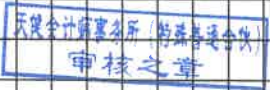 天健会计师事务所（特殊普通合伙）
审核之章